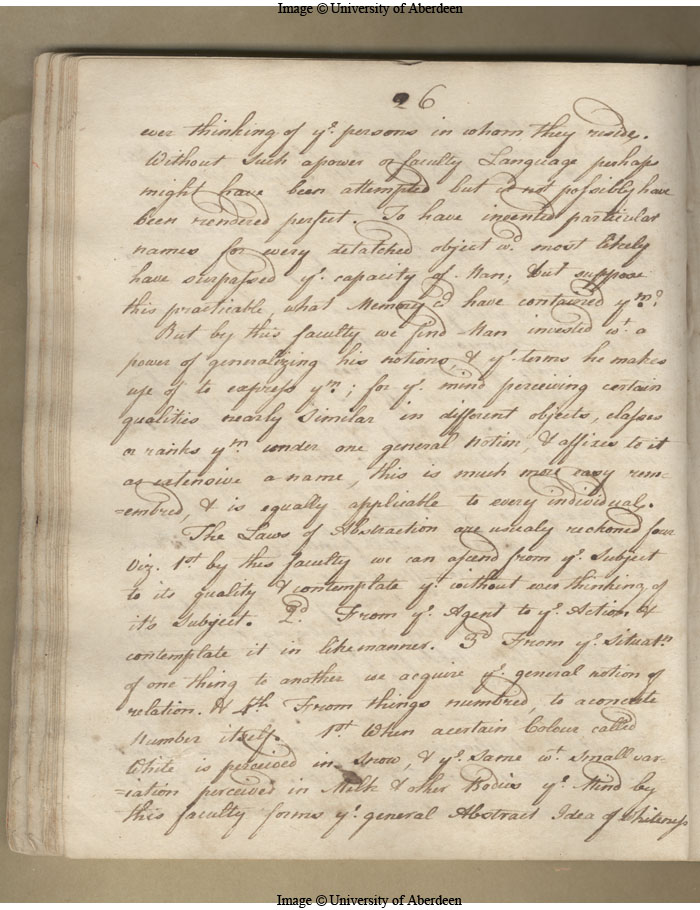 Image © University of Aberdeen
26
ever thinking of yᵉ persons in whom they reside.
Without such a power or faculty Language perhaps
might have been attempted but not possibly have
been rendered perfect. To have invented particular
names for every detatched object wᵈ most likely
have surpassed yᵉ capacity of Man; but suppose
this practicable, what Memory cᵈ have contained yᵐ?
But by this faculty we find Man invested wᵗ a
power of generalizing his notions & yᵉ terms he makes
use of to express yᵐ; for yᵉ mind perceiving certain
qualities nearly similar in different objects, classes
or ranks yᵐ under one general notion, & affixes to it
as extensive a name, this is much more easy rem-
=embred, & is equally applicable to every individual.
The Laws of Abstraction are usualy reckoned four
Viz. 1st by this faculty we can ascend from yᵉ Subject
to its quality & contemplate yᵗ without ever thinking of
it's Subject. 2ᵈ. From yᵉ Agent to yᵉ Action, &
contemplate it in like manner. 3ᵈ From yᵉ Situatⁿ
of one thing to another we acquire yᵉ general notion of
relation. & 4th From things numbred, to aconcrete
Number itself. 1st When acertain Colour called
White is perceived in Snow, & yᵉ same wᵗ small var-
=iation perceived in Milk & other Bodies yᵉ Mind by
this faculty forms yᵉ general Abstract Idea of Whiteness
Image © University of Aberdeen